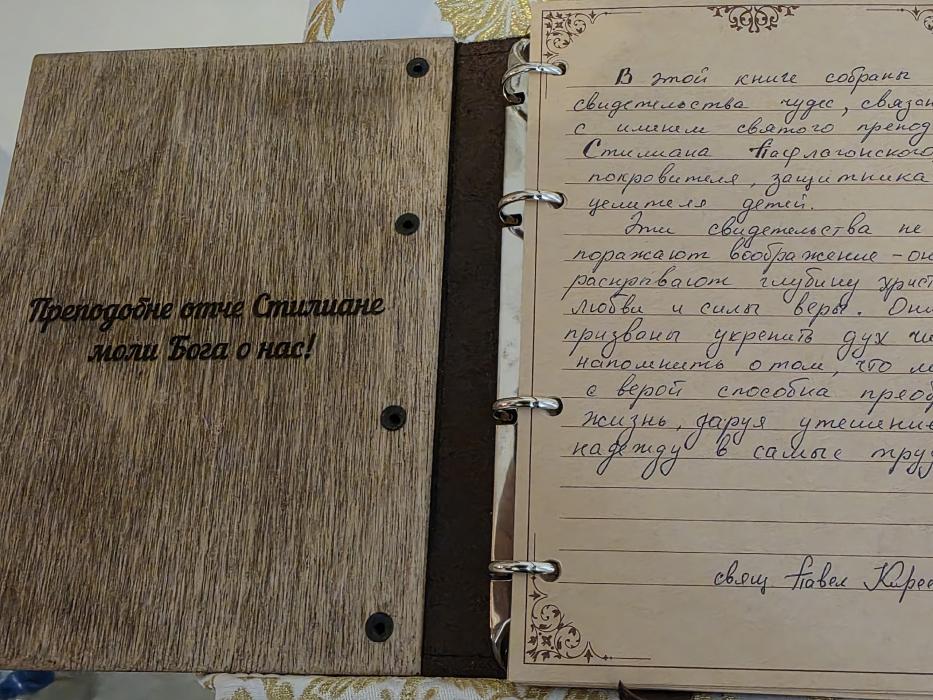 Преподобне отче Стилиане
моли Бога о нас!
В этой книге собраны
свидетельства чудес, связан
с именем святого препод
Стилиана Пафлагонского
покровителя, защитника
целителя детей.
Эти свидетельства не
поражают воображение - он
раскрывают глубину христ
любви и силы веры. Они
призваны укрепить дух чи
напомнить о том, что м
с верой способна преоб
жизнь, даруя утешение
надежду в самые труд
свящ Павел Кирее